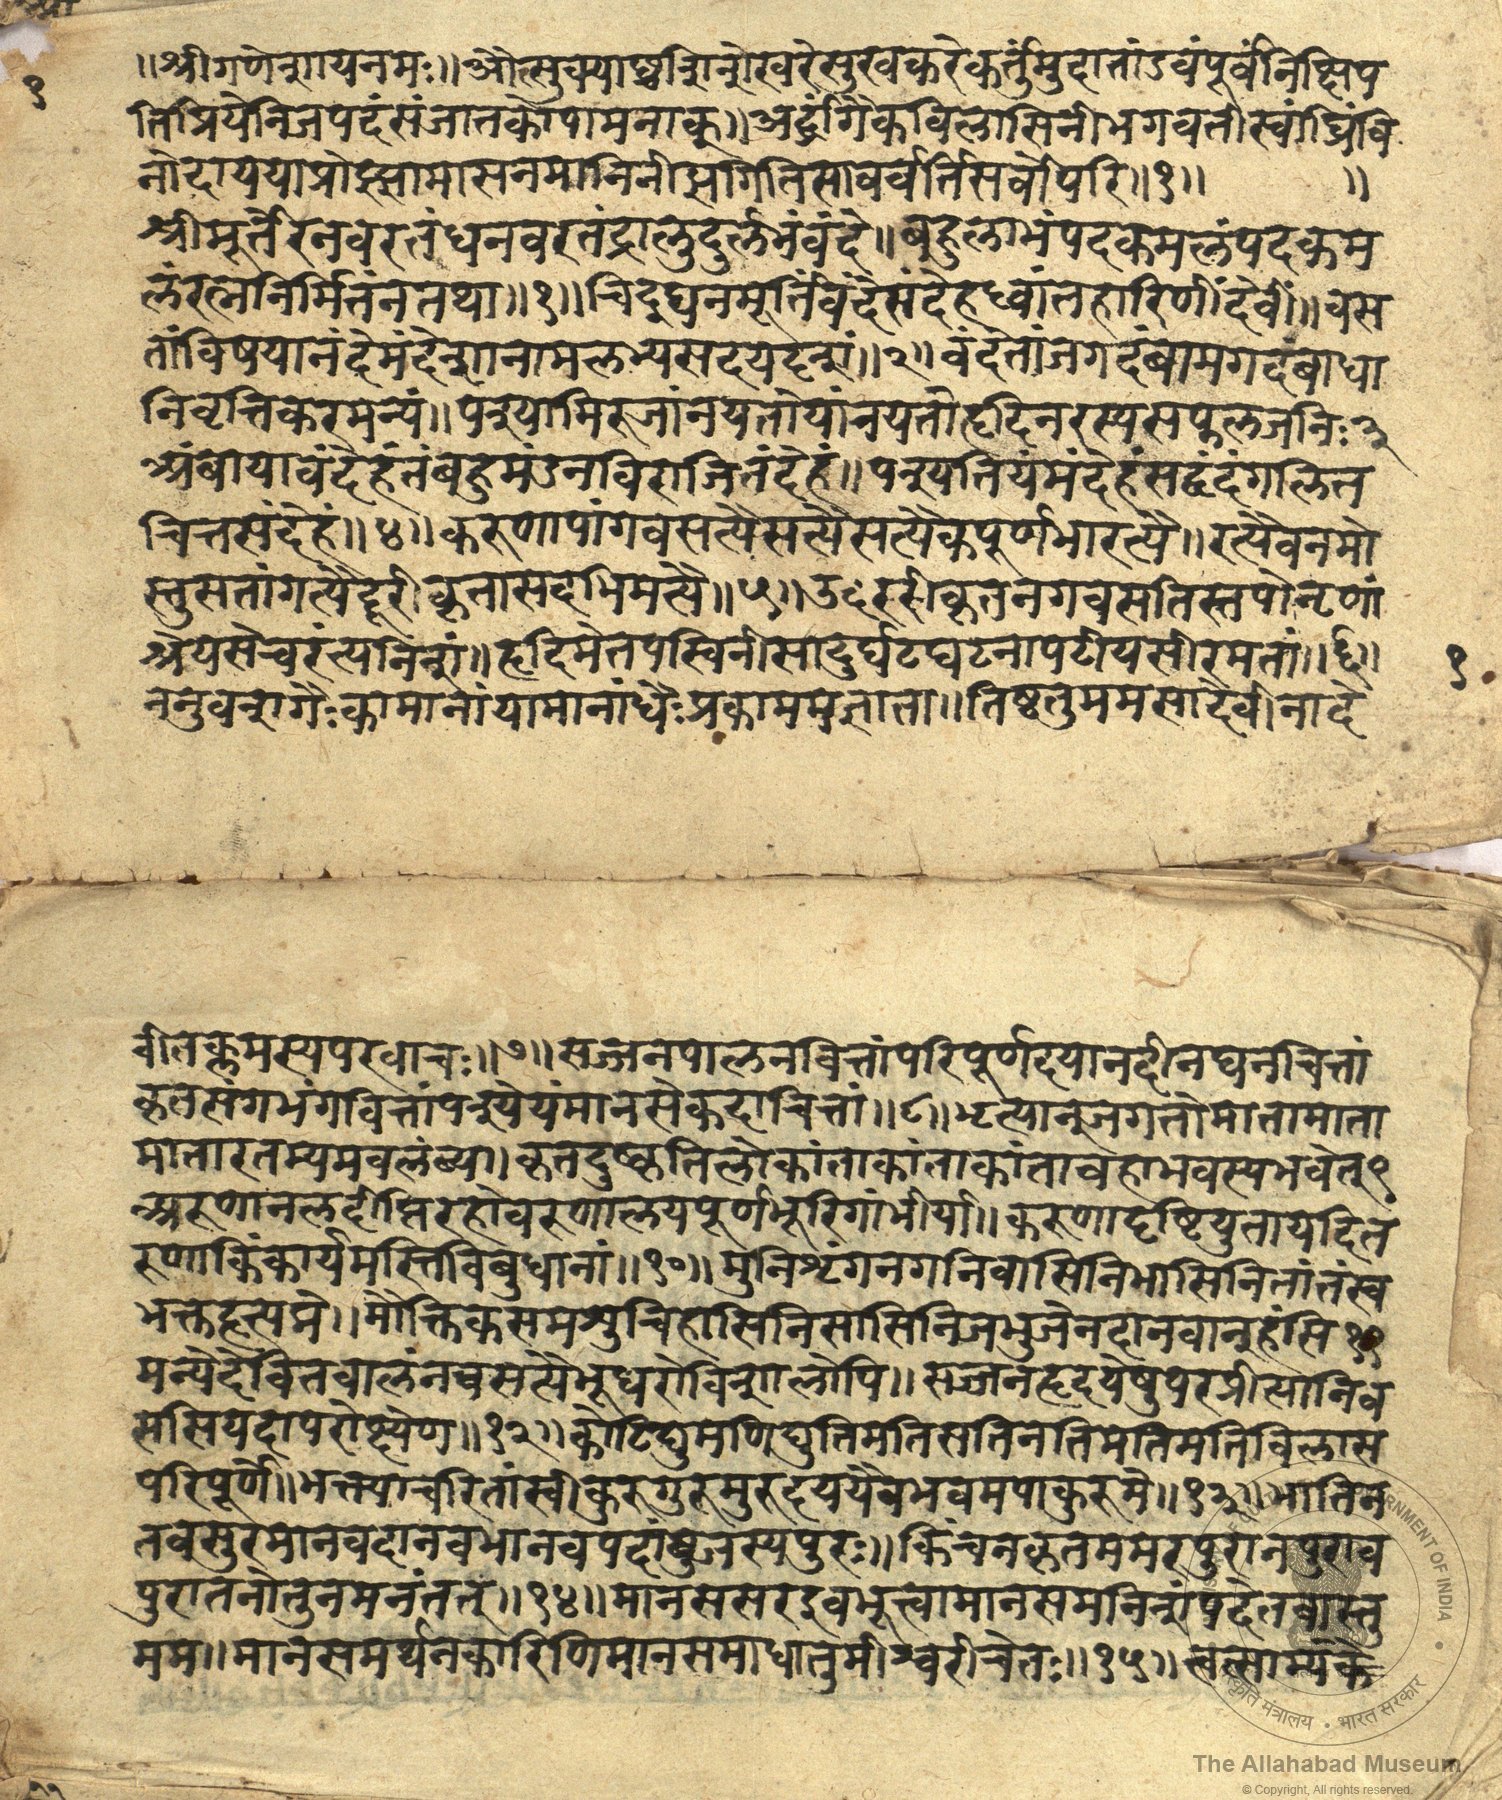 ॥श्रीगणेशायनमः॥औत्सुक्याच्चशिशोखरेसुखकरेकर्तुंमुदातांडवंपूर्वंनिष्टिप
तिप्रियेनिजपदंसंजातकोपामनाक्॥अर्द्धांगैकविलासिनीभगवतीस्वांघ्रिंवि
नोदाययाप्रोझ्झामासनमानिनीझगितिसावर्वर्तिसर्वोपरि॥१॥ ॥
श्रीमूर्तेरनवरतंघनवरतंद्रालुदुर्लभंवंदे॥बहुलाभंपदकमलंपदकम
लंरत्ननिर्मितंनतथा॥१॥चिद्घनमूर्तिंवंदेसंदेहध्वांतहारिणींदेवीं॥वस
तांविषयानंदेमंदेशानामलभ्यसदयदृशं॥२॥वंदेतांजगदंबामगदंबाधा
निवृत्तिकरमन्यं॥पश्यामिरुजांनयतोयांनयतोहृदिनरस्यसफलजनिः३
अंबायावंदेहंतंबहुमंडनविराजितंदेहं॥पश्यतियंमंदेहंसद्वंद्वंगलित
चित्तसंदेहं॥४॥करुणापांगवसत्यैसत्यैसत्यैकपूर्णभारत्यै॥रत्यैवनमो
स्तुसतांगत्यैदूरीकृतासदभिमत्यै॥५॥उररीकृतनगवसतिस्तपोनृणां
श्रेयसेचरंत्यनिशं॥हृदिमेतपस्विनीसादुर्घटघटनापटीयसीरमतां॥६॥
ननुवशगैःकामानांयामानांघैःप्रकाममज्ञाता॥तिष्ठतुममसादेवीनादे
वीतक्लमस्यपरवाचः॥७॥सज्जनपालनवित्तांपरिपूर्णदयानदीनघनचित्तां
कृतसंगभंगवित्तांपश्येयंमानसेकदाचित्तां॥८॥भृत्यानुजगतोमातामाता
मातारतम्यमवलंब्या।कृतदुष्कृतिलोकांताकांताकांतावहाभवस्यभवेत्९
अरुणानलदीप्तिरहोवरुणालयपूर्णभूरिगांभीर्या॥करुणादृष्टियुतायेदित
रुणाकिंकार्यमस्तिविबुधानां॥१०॥मुनिशृंगनगनिवासिनिभासिनितांतंस्व
भक्तहृत्पद्मे।मौक्तिकसमशुचिहासिनिसासिनिजभुजेनदानवान्हंसि११
मन्येदेवितवालंनवसत्यैभूधरोविशालोपि॥सज्जनहृदयेषुपरप्रीत्यानिव
ससियदापरोक्ष्येण॥१२॥कोटिद्युमणिद्युतिमतिसतिनतिमेतिमतिविलास
परिपूर्णे॥भक्त्याचरितांस्वीकुरुगुरुमुरुदययैवभवमपाकुरुमे॥१३॥भातिन
तवसुरमानवदानवभानवपदांबुजस्यपुरः॥किंचनकृतममरपुरानपुराव
पुरातनोतुनमनंतत्॥१४॥मानससरइवभूत्वामानसमनिशंपदेतवास्तु
मम॥मानसमर्थनकारिणिमानसमाधातुमीश्वरीचेतः॥१५॥त्वत्साम्यंके
१
१
The Allahabad Museum
© Copyright, All rights reserved.